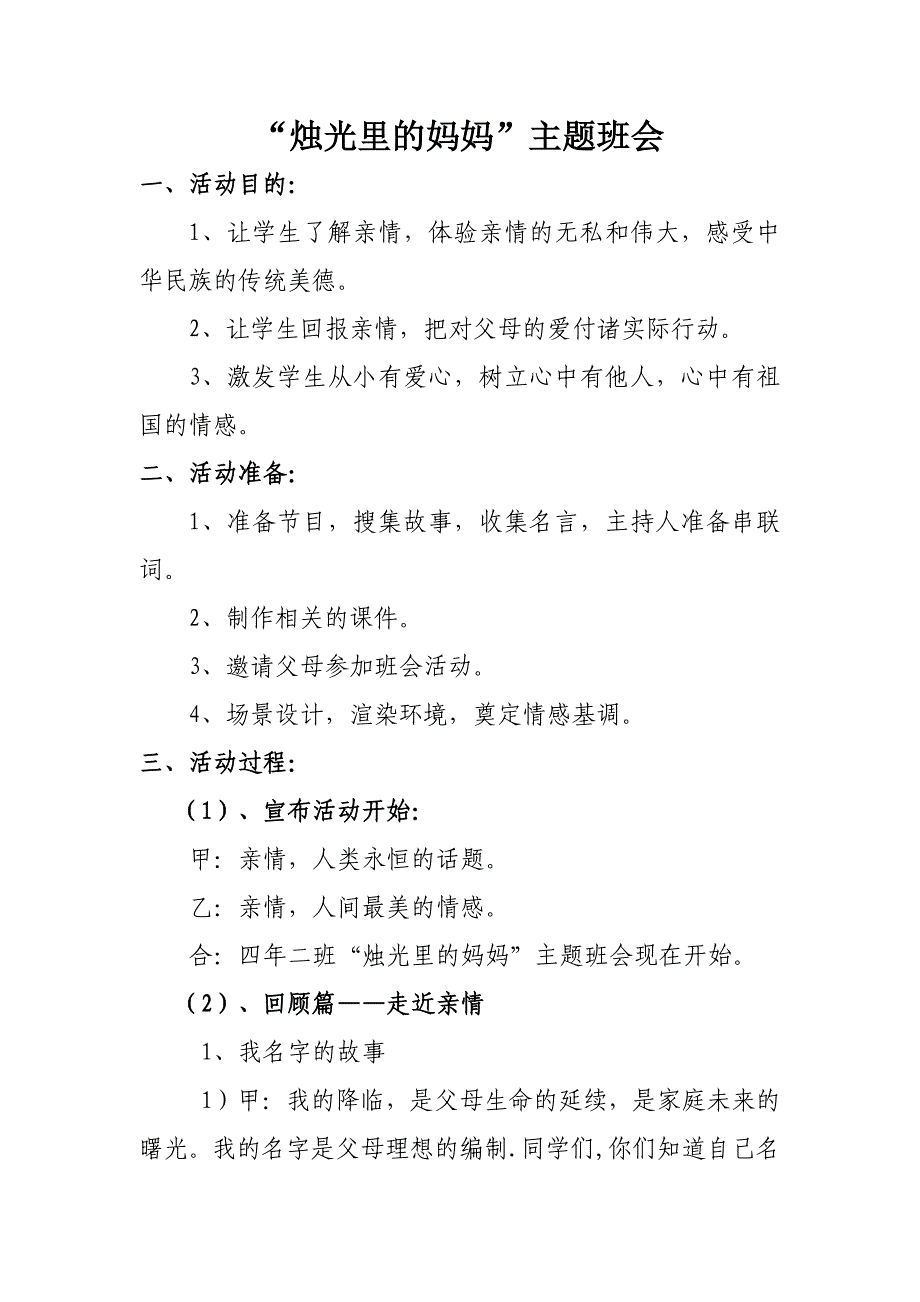 “烛光里的妈妈”主题班会
一、活动目的：
1、让学生了解亲情，体验亲情的无私和伟大，感受中
华民族的传统美德。
2、让学生回报亲情，把对父母的爱付诸实际行动。
3、激发学生从小有爱心，树立心中有他人，心中有祖
国的情感。
二、活动准备：
1、准备节目，搜集故事，收集名言，主持人准备串联
词。
2、制作相关的课件。
3、邀请父母参加班会活动。
4、场景设计，渲染环境，奠定情感基调。
三、活动过程：
（1）、宣布活动开始：
甲：亲情，人类永恒的话题。
乙：亲情，人间最美的情感。
合：四年二班“烛光里的妈妈”主题班会现在开始。
（2）、回顾篇——走近亲情
1、我名字的故事
1）甲：我的降临，是父母生命的延续，是家庭未来的
曙光。我的名字是父母理想的编制.同学们,你们知道自己名